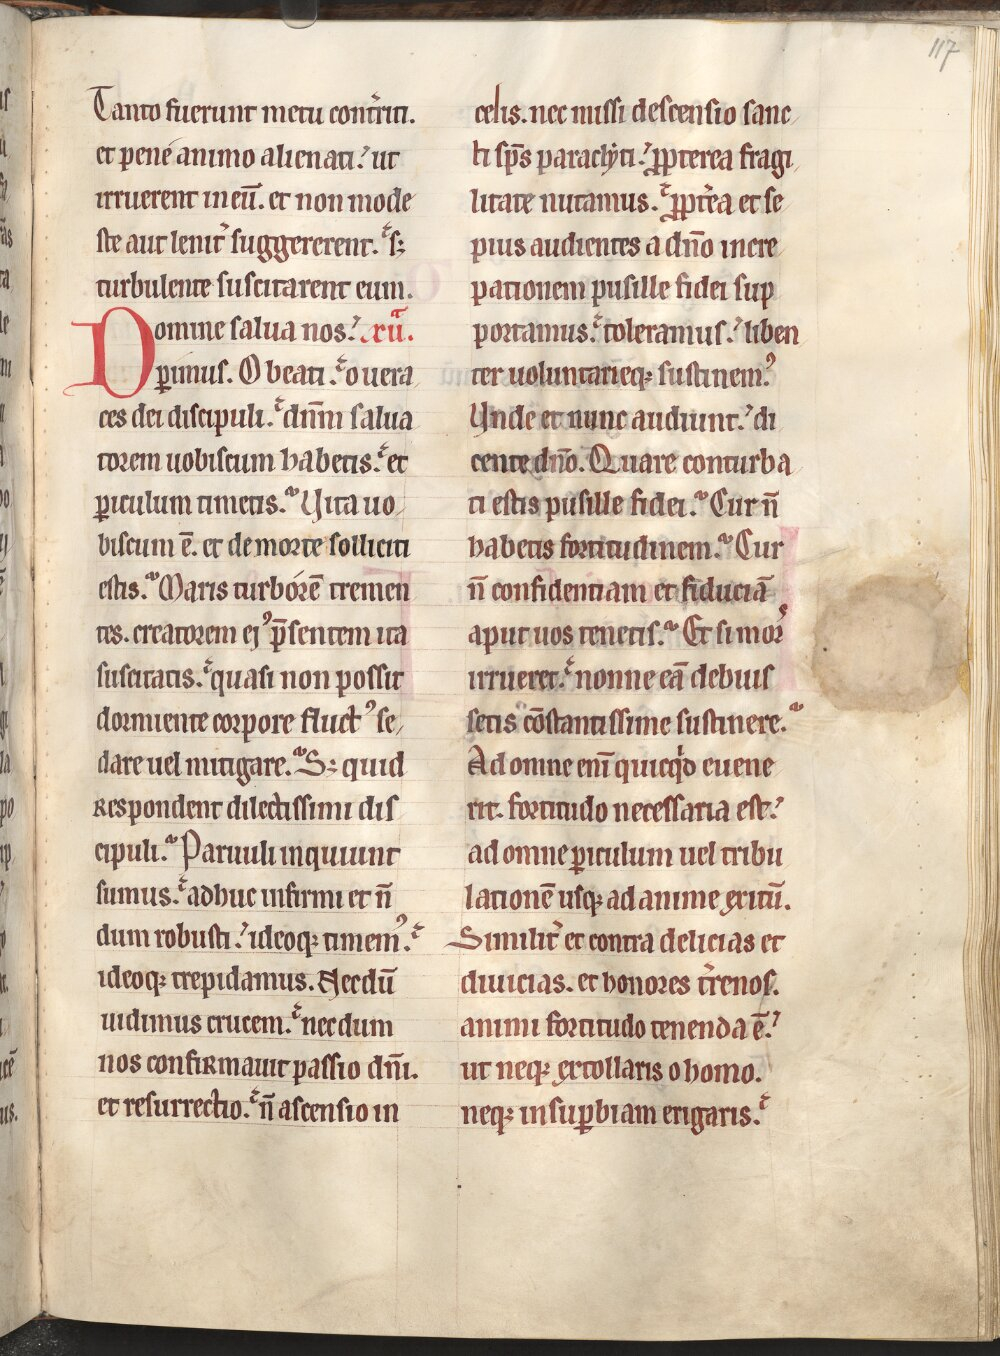 117
Tanto fuerunt metu contͥriti.
et pene animo alienati. ut
irruerent in eū. et non mode
ste aut lenit᷒ suggererent. sꝫ
turbulente suscitarent eum.
Domine salua nos. xii.
ꝑimus. O beati. o uera
ces dei discipuli. dn̄m salua
torem uobiscum habetis. et
ꝑiculum timetis. Uita uo
biscum ē. et de morte solliciti
estis. Maris turborē tremen
tes. creatorem eiꝰ p̄sentem ita
suscitatis. quasi non possit
dormiente corpore fluctꝰ se
dare uel mitigare. Sꝫ quid
respondent dilectissimi dis
cipuli. Paruuli inquiunt
sumus. adhuc infirmi et n̄
dum robusti. ideoqꝫ timemꝰ.
ideoqꝫ trepidamus. Necdū
uidimus crucem. necdum
nos confirmauit passio dn̄i.
et resurrectio. n̄ ascensio in
celis. nec missi descensio sanc
ti sp̄s paraclyti. ꝓpterea fragi
litate nutamus. ꝓpt᷒ea et se
pius audientes a dn̄o incre
pationem pusille fidei sup
portamus. toleramus. liben
ter uoluntarieqꝫ sustinemꝰ.
Unde et nunc audiunt. di
cente dn̄o. Quare conturba
ti estis pusille fidei. Cur n̄
habetis fortitudinem. Cur
n̄ confidentiam et fiduciā
aput uos tenetis. Et si mors
irrueret. nonne eā debuis
setis cōstantissime sustinere.
Ad omne eni̅ quicqͥd euene
rit. fortitudo necessaria est.
ad omne ꝑiculum uel tribu
lationē usqꝫ ad anime exitū.
Similit᷒ et contra delicias et
diuicias. et honores t᷒renos.
animi fortitudo tenenda ē.
ut neqꝫ extollaris o homo.
neqꝫ in suꝑbiam erigaris.